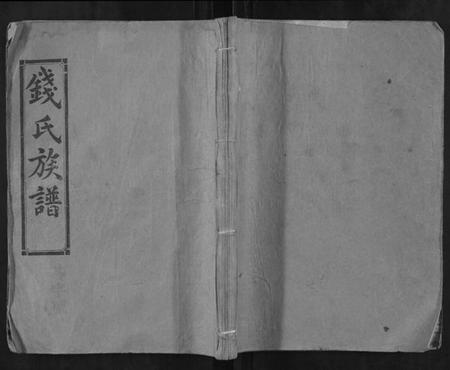 錢氏族譜